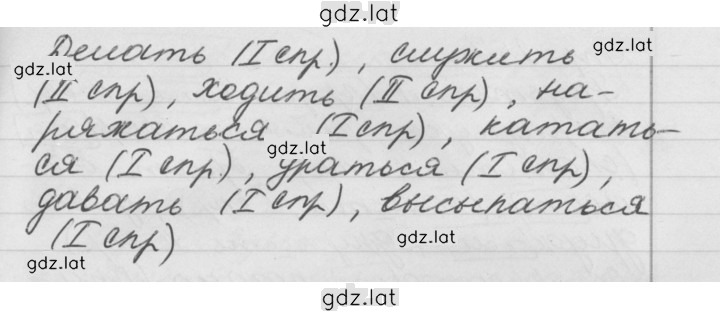 gdz.lat
Делать (I спр.), служить
gdz.lat
gdz.lat
(II спр), ходить (II спр), на-
ряжаться (I спр), катать-
gdz.lat
ся (I спр.), ураться (I спр),
давать (I спр), высыпаться
(I спр)
gdz.lat
gdz.lat
gdz.lat